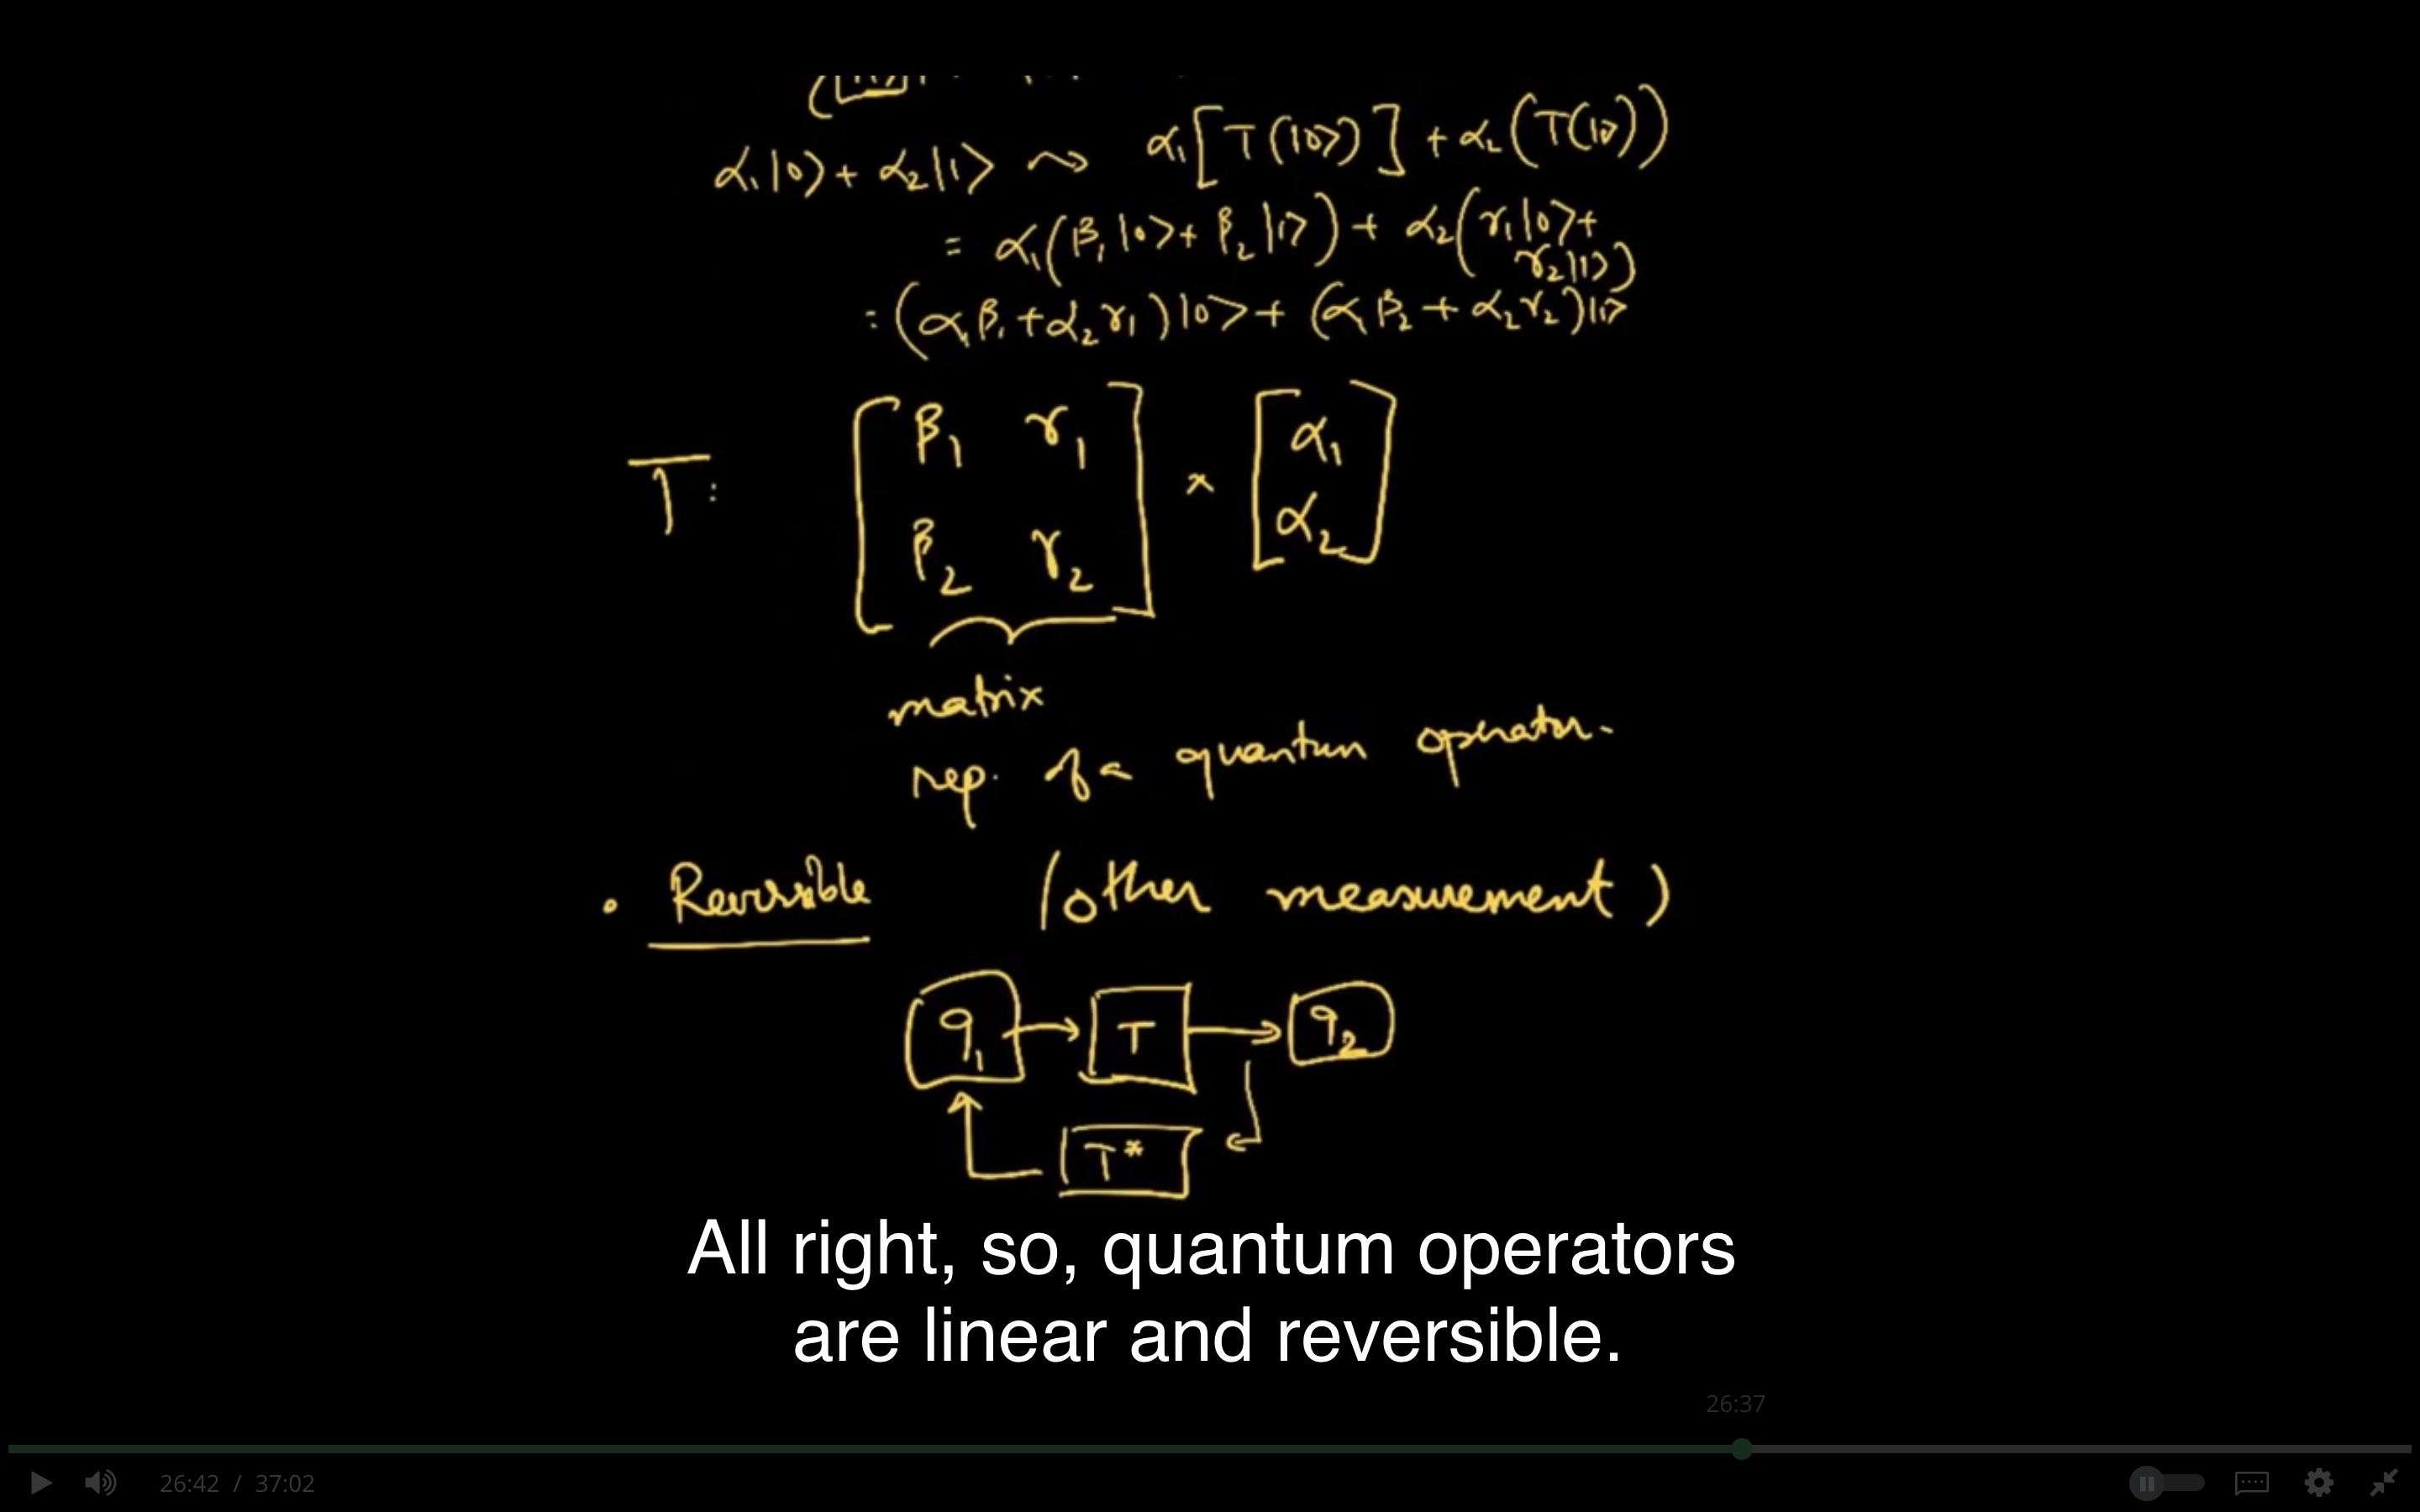 α₁|0⟩ + α₂|1⟩ ⇝ α₁[T(|0⟩)] + α₂(T(|1⟩))
= α₁(β₁|0⟩ + β₂|1⟩) + α₂(γ₁|0⟩ +
γ₂|1⟩)
= (α₁β₁ + α₂γ₁)|0⟩ + (α₁β₂ + α₂γ₂)|1⟩
β₁ γ₁ α₁
T: ×
β₂ γ₂ α₂
matrix
rep. of a quantum operator.
• Reversible (other measurement)
q₁ → T → q₂
T*
All right, so, quantum operators
are linear and reversible.
26:37
26:42 / 37:02